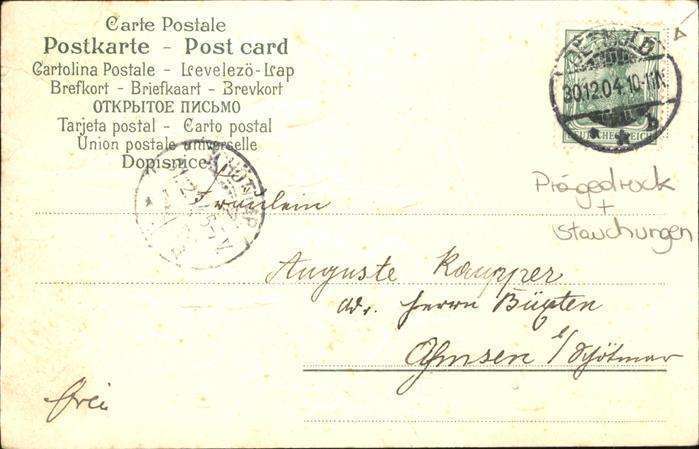 Carte Postale
Postkarte - Post card
Cartolina Postale - Levelezö-Lap
Brefkort - Briefkaart - Brevkort
ОТКРЫТОЕ ПИСЬМО
Tarjeta postal - Carto postal
Union postale universelle
Dopisnice
DETMOLD
30 12 04 10-11N
* * b
DEUTSCHES REICH
Prägedruck
+
Stauchungen
Fräulein
Auguste Kaupper
adr. Herrn
Ahmsen b/Schötmar
frei